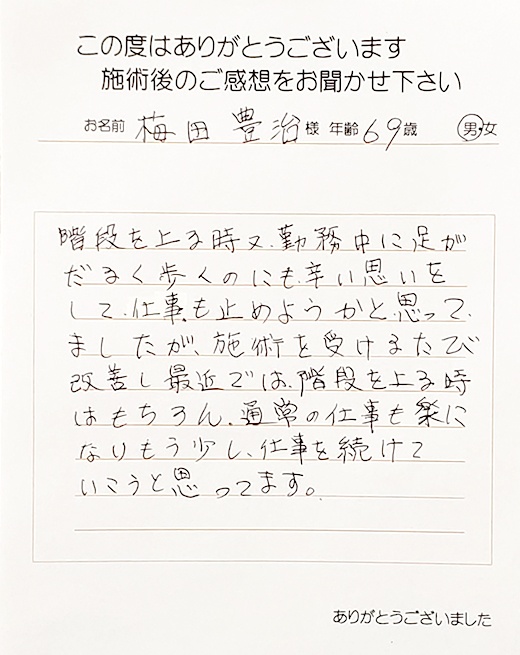 この度はありがとうございます
施術後のご感想をお聞かせ下さい
お名前 梅田 豊治 様 年齢 69 歳 男・女
階段を上る時又、勤務中に足が
だるく歩くのにも、辛い思いを
して、仕事も止めようかと思って、
ましたが、施術を受けるたび
改善し最近では、階段を上る時
はもちろん、通常の仕事も楽に
なりもう少し、仕事を続けて
いこうと思ってます。
ありがとうございました